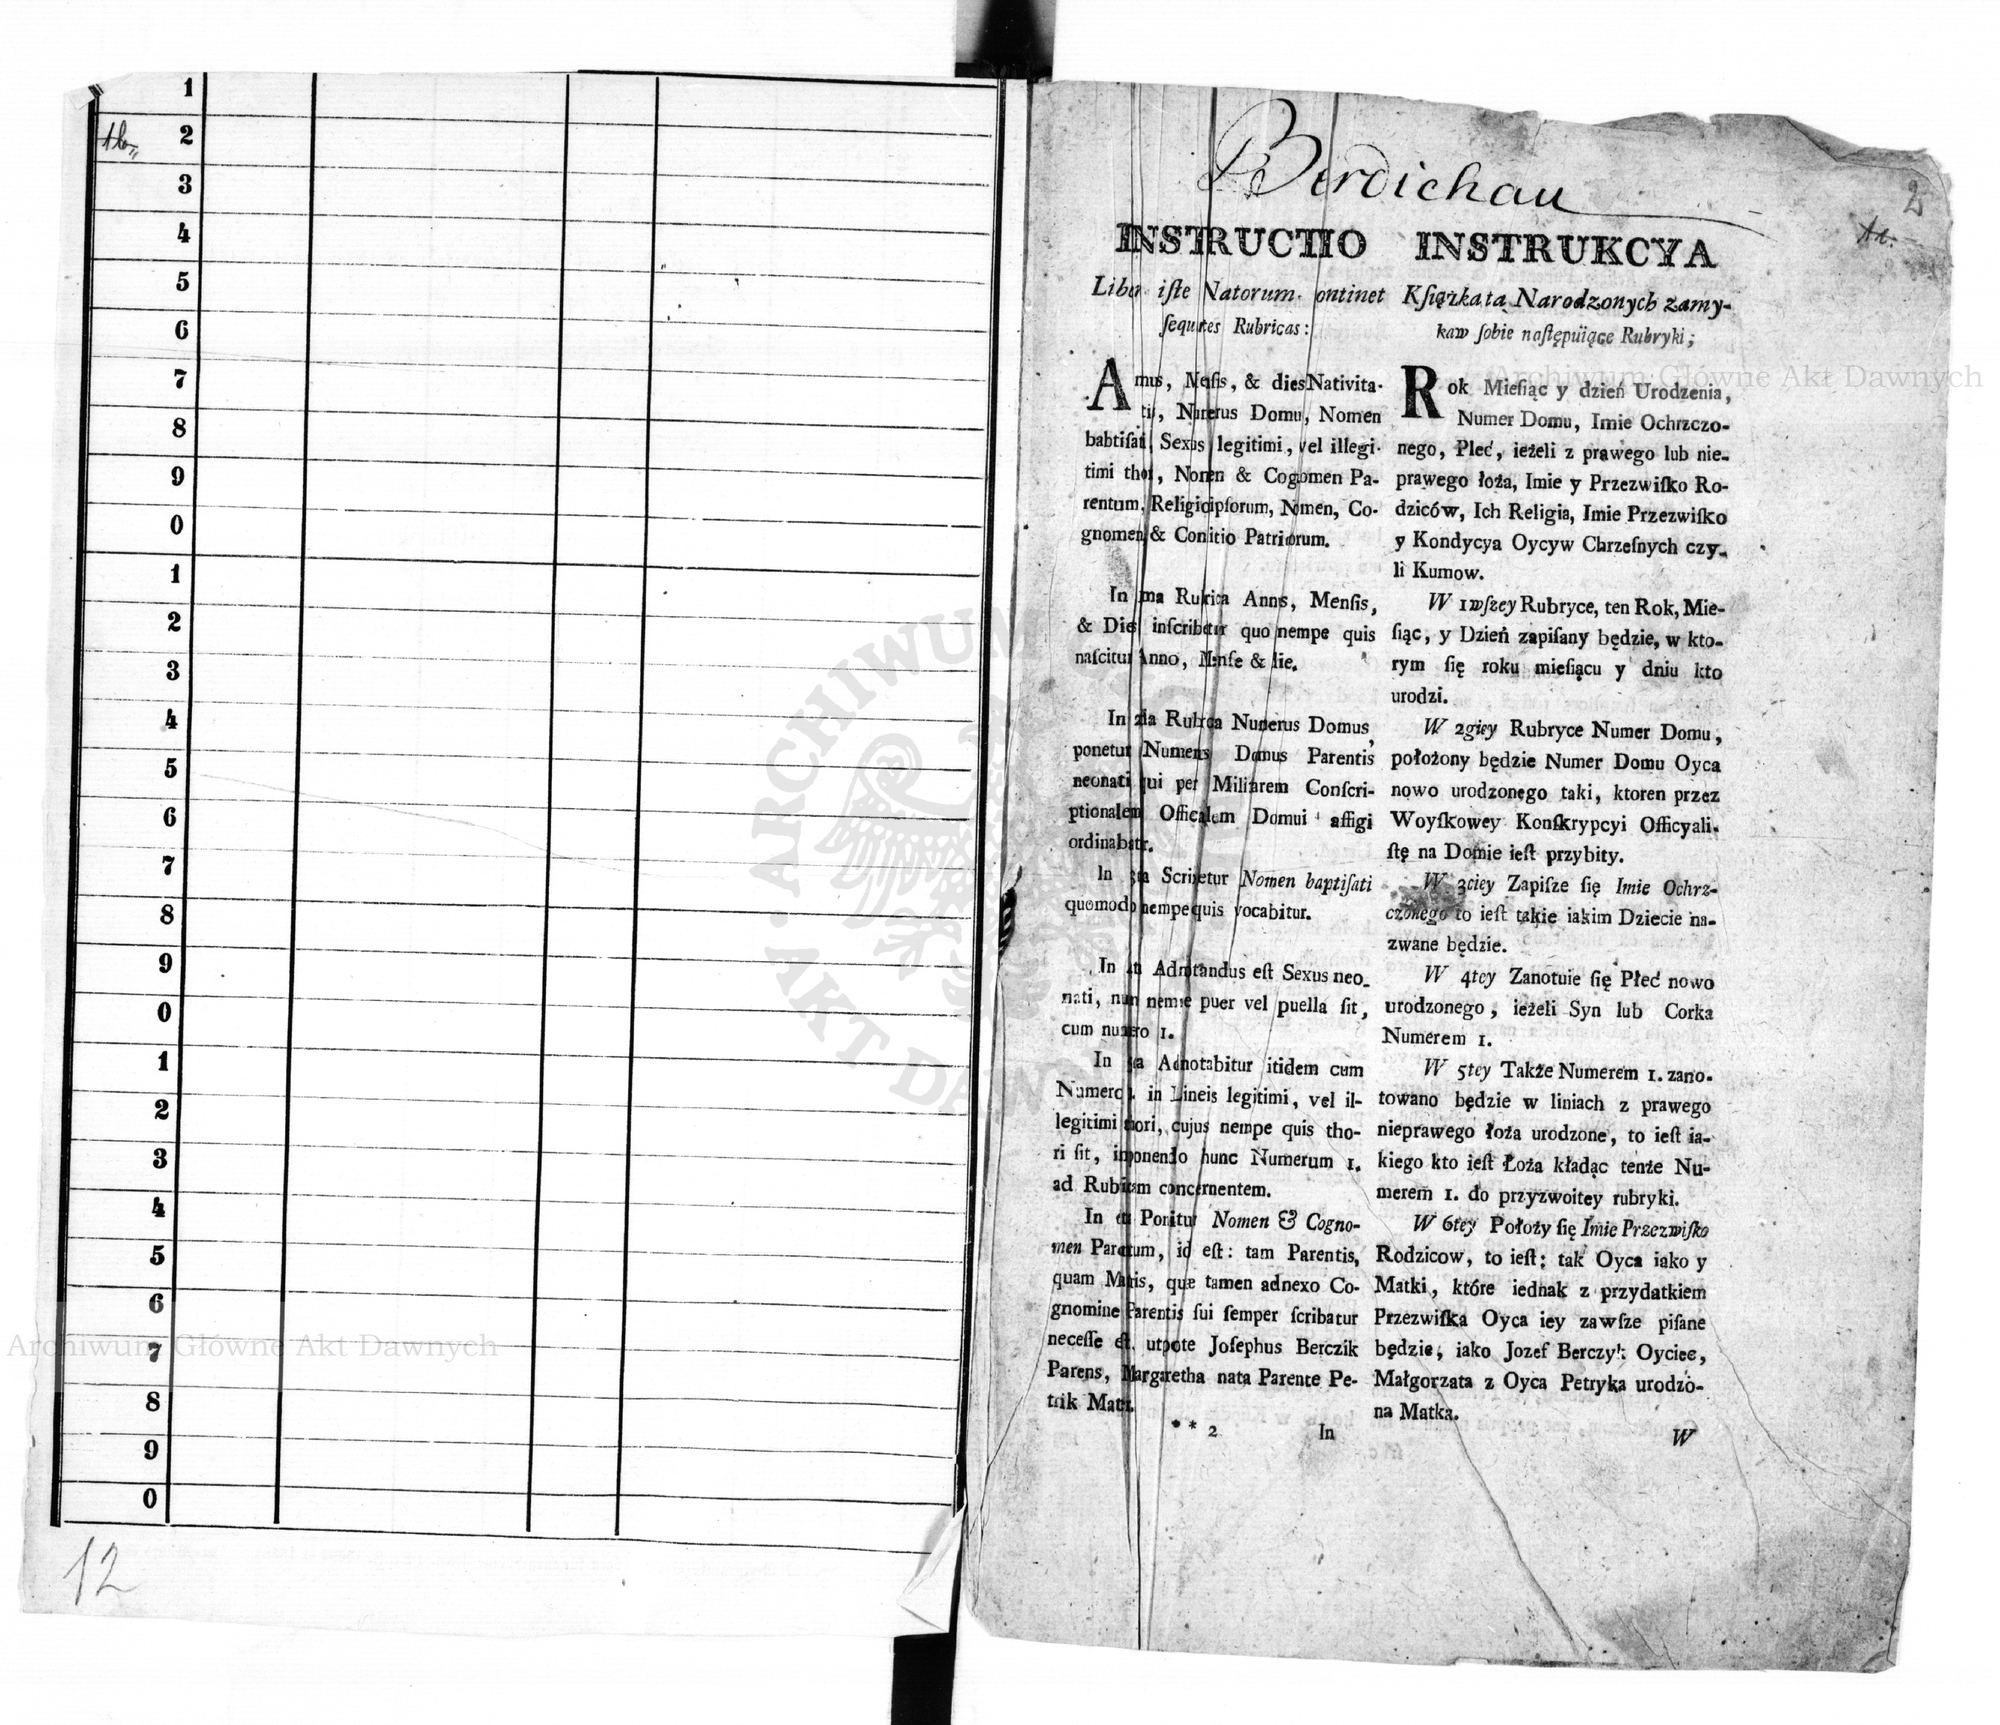 1
1b
2
3
4
5
6
7
8
9
0
1
2
3
4
5
6
7
8
9
0
1
2
3
4
5
6
7
8
9
0
12
Berdichau
2
INSTRUCTIO
Liber iſte Natorum continet
ſequ Rubricas:
A , & dies Nativita-
Domu, Nomen
babtiſati, Sexus legitimi, vel illegi-
timi & Cogomen Pa-
rentum, Co-
gnomen & Patri
In Rubrica Mensis,
& Dies inſcribetur quo nempe quis
naſcitur Anno, Menſe & die.
In Rubrica Numerus Domus,
ponetur Domus Parentis
neonati qui per Conſcri-
ptionalem Domui affigi
In Nomen baptiſati
quomodo nempe quis vocabitur.
In Adnotandus eſt Sexus neo-
nati, puer vel puella ſit,
cum numero 1.
In Adnotabitur itidem cum
Numero in Lineis legitimi, vel il-
legitimi cujus nempe quis tho-
ri ſit, hunc Numerum 1.
ad concernentem.
In Ponitur Nomen & Cogno-
men id eſt: tam Parentis,
quam quæ tamen adnexo Co-
gnomine Parentis ſui ſemper ſcribatur
neceſſe utpote Joſephus Berczik
Parens, Margaretha nata Parente Pe-
trik
* * 2 In
INSTRUKCYA
Kſiążka ta Narodzonych zamy-
kaw ſobie naſtępuiące Rubryki;
Rok Mieſiąc y dzień Urodzenia,
Numer Domu, Imie Ochrzczo-
nego, Płeć, ieżeli z prawego lub nie-
prawego łoża, Imie y Przezwiſko Ro-
dziców, Ich Religia, Imie Przezwiſko
y Kondycya Oycyw Chrzeſnych czy-
li Kumow.
W 1wſzey Rubryce, ten Rok, Mie-
ſiąc, y Dzień zapiſany będzie, w kto-
rym ſię roku mieſiącu y dniu kto
urodzi.
W 2giey Rubryce Numer Domu,
położony będzie Numer Domu Oyca
nowo urodzonego taki, ktoren przez
Woyſkowey Konſkrypcyi Officyali-
ſtę na Domie ieſt przybity.
W 3ciey Zapiſze ſię Imie Ochrz-
czonego to ieſt takie iakim Dziecie na-
zwane będzie.
W 4tey Zanotuie ſię Płeć nowo
urodzonego, ieżeli Syn lub Corka
Numerem 1.
W 5tey Także Numerem 1. zano-
towano będzie w liniach z prawego
nieprawego łoża urodzone, to ieſt ia-
kiego kto ieſt Łoża kładąc tenże Nu-
merem 1. do przyzwoitey rubryki.
W 6tey Położy ſię Imie Przezwiſko
Rodzicow, to ieſt; tak Oyca iako y
Matki, które iednak z przydatkiem
Przezwiſka Oyca iey zawſze piſane
będzie, iako Jozef Berczyk Oyciec,
Małgorzata z Oyca Petryka urodzo-
na Matka.
W
Archiwum Główne Akt Dawnych
Archiwum Główne Akt Dawnych